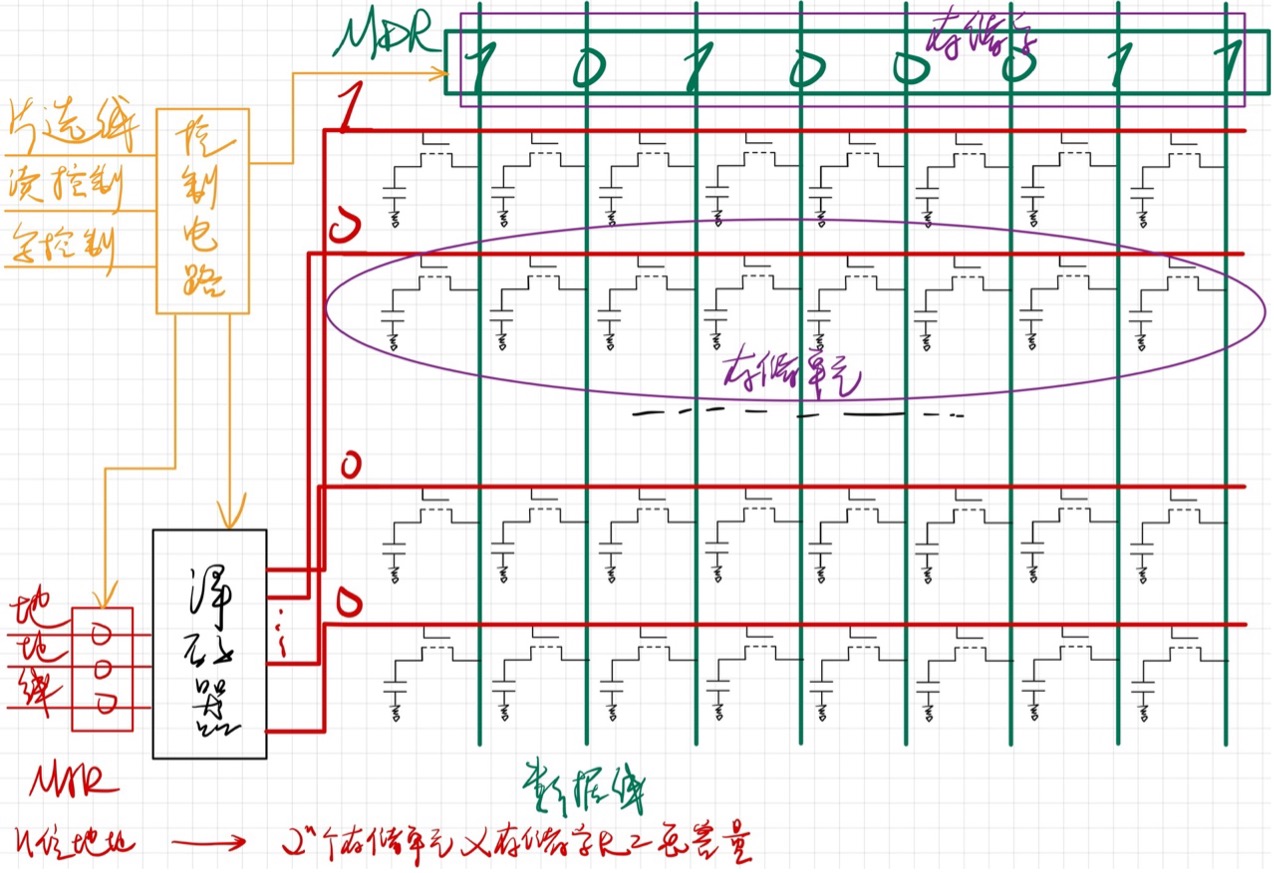 MDR
存储字
1 0 1 0 0 0 1 1
片选线
读控制
写控制
控制电路
1
0
存储单元
0
0
译码器
地
地
线
0
0
0
MAR
数据线
n位地址 → 2ⁿ个存储单元 × 存储字长 = 总容量